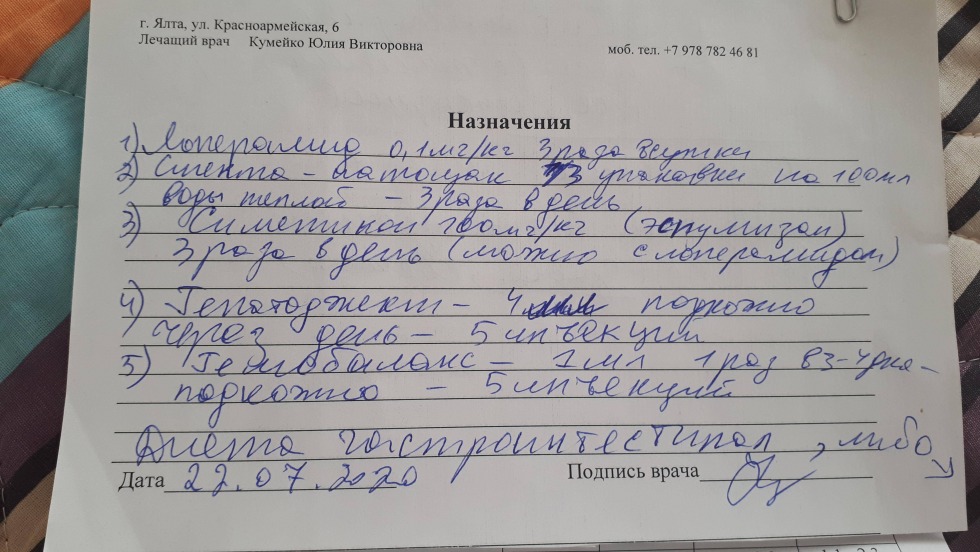 г. Ялта, ул. Красноармейская, 6
Лечащий врач Кумейко Юлия Викторовна
моб. тел. +7 978 782 46 81
Назначения
1) Лоперамид 0,1мг/кг 3 раза в сутки
2) Смекта – натощак 1/3 упаковки на 100мл
воды теплой – 3 раза в день
3) Симетикон 100мг/кг (эспумизан)
3 раза в день (можно с лоперамидом)
4) Гепатоджект – 4 подкожно
через день – 5 инъекций
5) Гемобаланс – 1мл 1 раз в 3-4 дня –
подкожно – 5 инъекций
Диета гастроинтестинал, либо
Дата 22.07.2020
Подпись врача